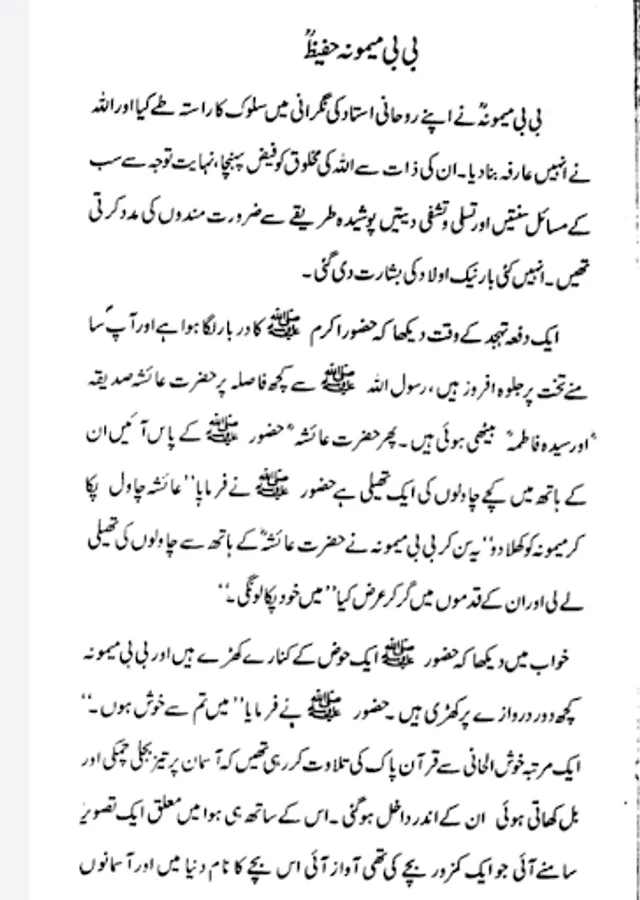 بی بی میمونہ حفیظؒ
بی بی میمونہؒ نے اپنے روحانی استاد کی نگرانی میں سلوک کا راستہ طے کیا اور اللہ
نے انہیں عارفہ بنا دیا۔ ان کی ذات سے اللہ کی مخلوق کو فیض پہنچا، نہایت توجہ سے سب
کے مسائل سنتیں اور تسلی و تشفی دیتیں پوشیدہ طریقے سے ضرورت مندوں کی مدد کرتی
تھیں۔ انہیں کئی بار نیک اولاد کی بشارت دی گئی۔
ایک دفعہ تہجد کے وقت دیکھا کہ حضور اکرم ﷺ کا دربار لگا ہوا ہے اور آپؐ سا
منے تخت پر جلوہ افروز ہیں، رسول اللہ ﷺ سے کچھ فاصلہ پر حضرت عائشہ صدیقہ
ؓ اور سیدہ فاطمہؓ بیٹھی ہوئی ہیں۔ پھر حضرت عائشہؓ حضور ﷺ کے پاس آئیں ان
کے ہاتھ میں کچے چاولوں کی ایک تھیلی ہے حضور ﷺ نے فرمایا ”عائشہ چاول پکا
کر میمونہ کو کھلا دو“ یہ سن کر بی بی میمونہ نے حضرت عائشہؓ کے ہاتھ سے چاولوں کی تھیلی
لے لی اور ان کے قدموں میں گر کر عرض کیا ”میں خود پکا لونگی۔“
خواب میں دیکھا کہ حضور ﷺ ایک حوض کے کنارے کھڑے ہیں اور بی بی میمونہ
کچھ دور دروازے پر کھڑی ہیں۔ حضور ﷺ نے فرمایا ”میں تم سے خوش ہوں۔“
ایک مرتبہ خوش الحانی سے قرآن پاک کی تلاوت کر رہی تھیں کہ آسمان پر تیز بجلی چمکی اور
بل کھاتی ہوئی ان کے اندر داخل ہو گئی۔ اس کے ساتھ ہی ہوا میں معلق ایک تصویر
سامنے آئی جو ایک کمزور بچے کی تھی آواز آئی اس بچے کا نام دنیا میں اور آسمانوں